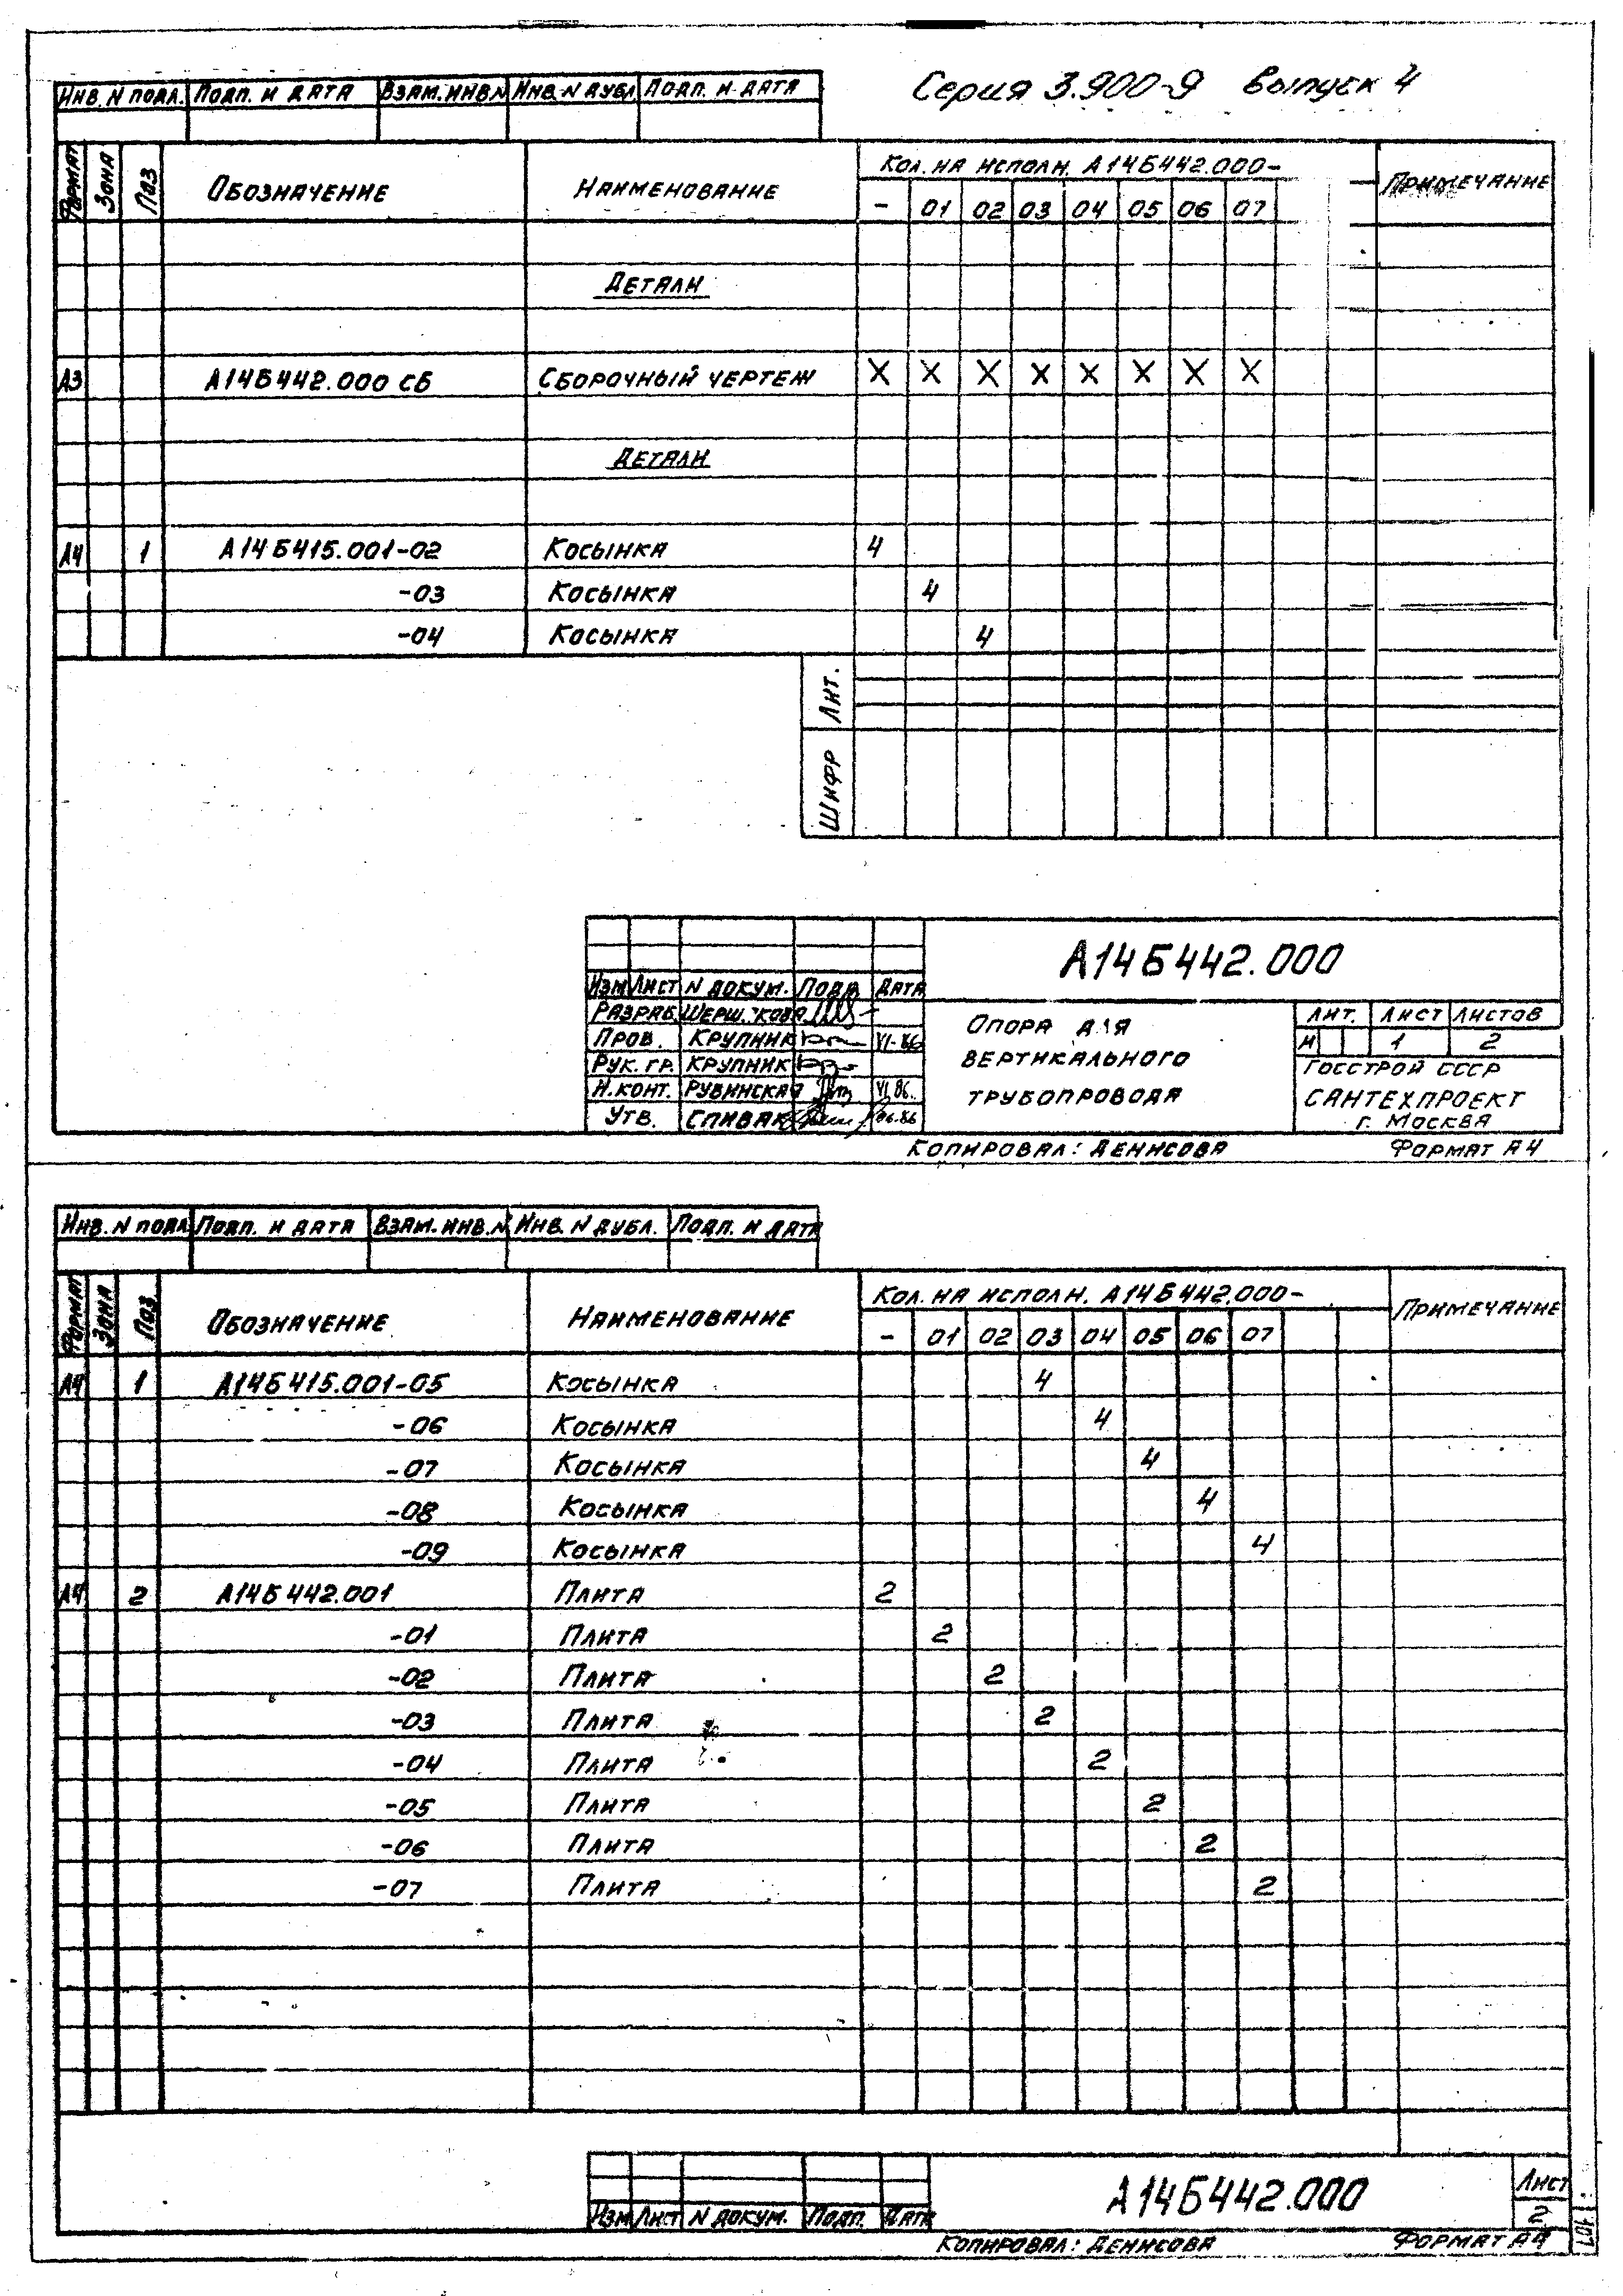 Серия 3.900-9 Выпуск 4
Инв. N подл. Подп. и дата Взам. инв. N Инв. N дубл. Подп. и дата
Формат Зона Поз Обозначение Наименование Кол. на исполн. А14Б442.000- Примечание
- 01 02 03 04 05 06 07
Детали
А3 А14Б442.000 СБ Сборочный чертеж X X X X X X X X
Детали
А4 1 А14Б415.001-02 Косынка 4
-03 Косынка 4
-04 Косынка 4
Лит.
Шифр
А14Б442.000
Изм Лист N докум. Подп. Дата
Разраб.
Пров. Крупник VI-86
Рук. гр. Крупник
Н. конт. Рубинская VI.86.
Утв. Спивак 06.86
Опора для
вертикального
трубопровода
Лит. Лист Листов
И 1 2
Госстрой СССР
Сантехпроект
г. Москва
Копировал: Денисова Формат А4
Инв. N подл. Подп. и дата Взам. инв. N Инв. N дубл. Подп. и дата
Формат Зона Поз Обозначение Наименование Кол. на исполн. А14Б442.000- Примечание
- 01 02 03 04 05 06 07
А4 1 А14Б415.001-05 Косынка 4
-06 Косынка 4
-07 Косынка 4
-08 Косынка 4
-09 Косынка 4
А4 2 А14Б442.001 Плита 2
-01 Плита 2
-02 Плита 2
-03 Плита 2
-04 Плита 2
-05 Плита 2
-06 Плита 2
-07 Плита 2
А14Б442.000
Лист
2
Изм Лист N докум. Подп. Дата
Копировал: Денисова Формат А4